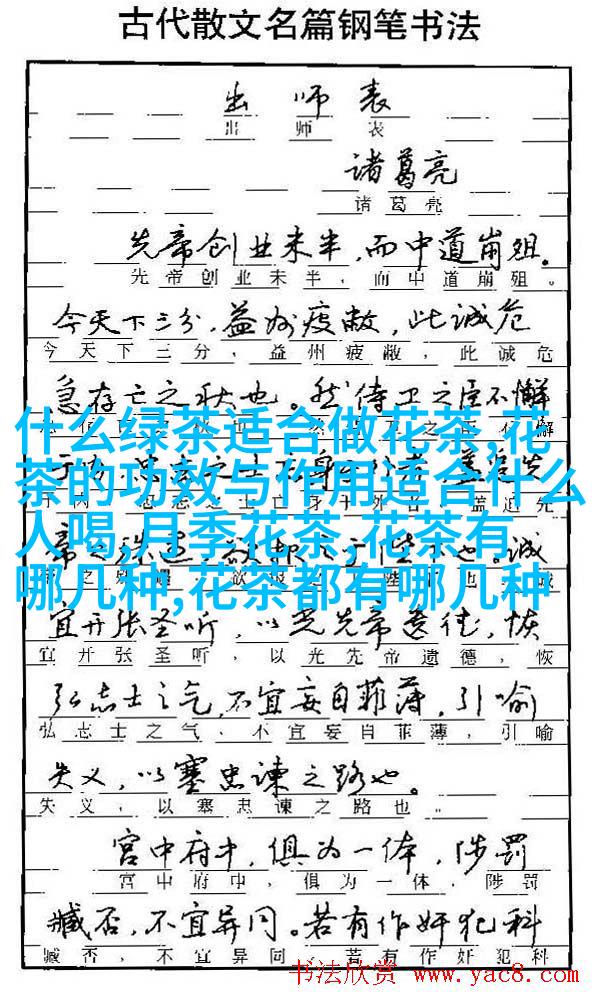 古代散文名篇钢笔书法
出师表
出师表
诸葛亮
诸葛亮
先帝创业未半,而中道崩殂。
先帝创业未半,而中道崩殂。
今天下三分,益州疲敝,此诚危
今天下三分,益州疲敝,此诚危
急存亡之秋也。然侍卫之臣不懈
什么绿茶适合做花茶,花
茶的功效与作用适合什么
人喝,月季花茶,花茶有
哪几种,花茶都有哪几种
宜开张圣听,以光先帝遗德,恢
宜开张圣听,以光先帝遗德,恢
弘志士之气,不宜妄自菲薄,引喻
弘志士之气,不宜妄自菲薄,引喻
失义,以塞忠谏之路也。
失义,以塞忠谏之路也。
宫中府中,俱为一体,陟罚
宫中府中,俱为一体,陟罚
臧否,不宜异同。若有作奸犯科
臧否,不宜异同。若有作奸犯科
书法欣赏 www.yac8.com